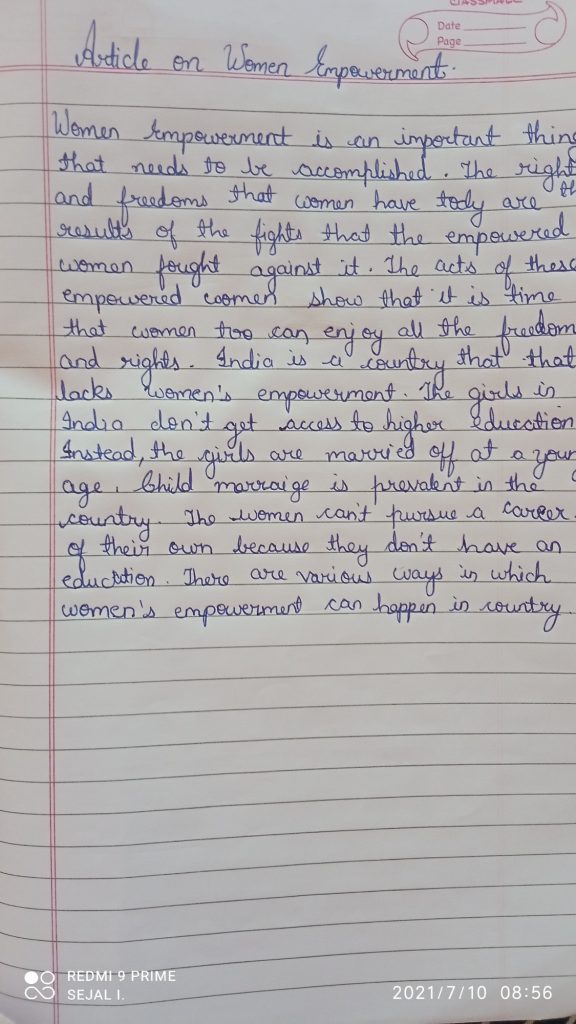 CLASSMATE
Date
Page
Article on Women Empowerment.
Women Empowerment is an important thing
that needs to be accomplished. The right
and freedoms that women have tody are th
results of the fights that the empowered
women fought against it. The acts of these
empowered women show that it is time
that women too can enjoy all the freedom
and rights. India is a country that that
lacks women's empowerment. The girls in
India don't get access to higher education
Instead, the girls are married off at a youn
age. Child marraige is prevalent in the
country. The women can't pursue a career
of their own because they don't have an
education. There are various ways in which
women's empowerment can happen in country
REDMI 9 PRIME
SEJAL I.
2021/7/10 08:56